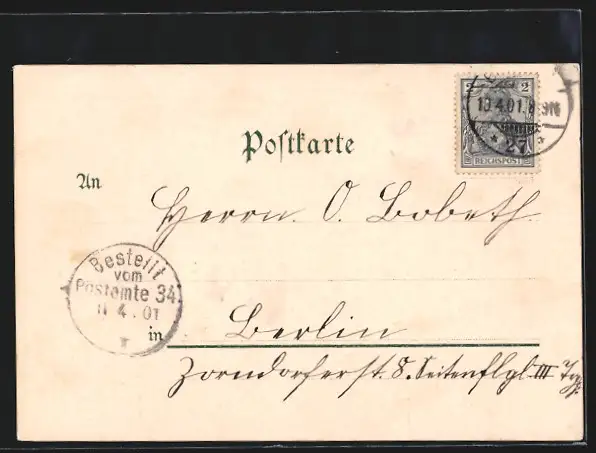 2 2
10.4.01. 8-9N
* 27 *
REICHSPOST
Postkarte
An
Herrn O. Bobeth.
Bestellt
vom
Postamte 34
11 4 . 01
in Berlin
Zorndorferst. 8. Seitenflgl. III Trp.